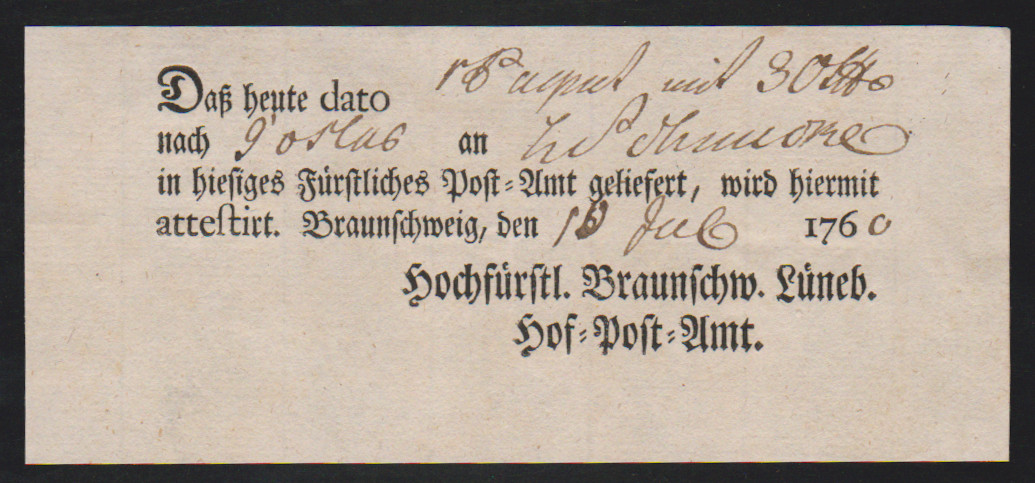 Daß heute dato mit 30
nach Goslar an
in hiesiges Fürstliches Post-Amt geliefert, wird hiermit
attestirt. Braunschweig, den Jul 1760
Hochfürstl. Braunschw. Lüneb.
Hof-Post-Amt.